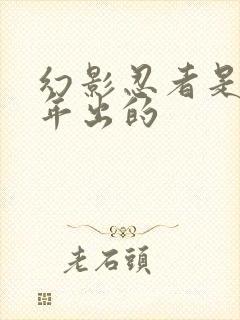 幻影忍者是
年出的
老石頭